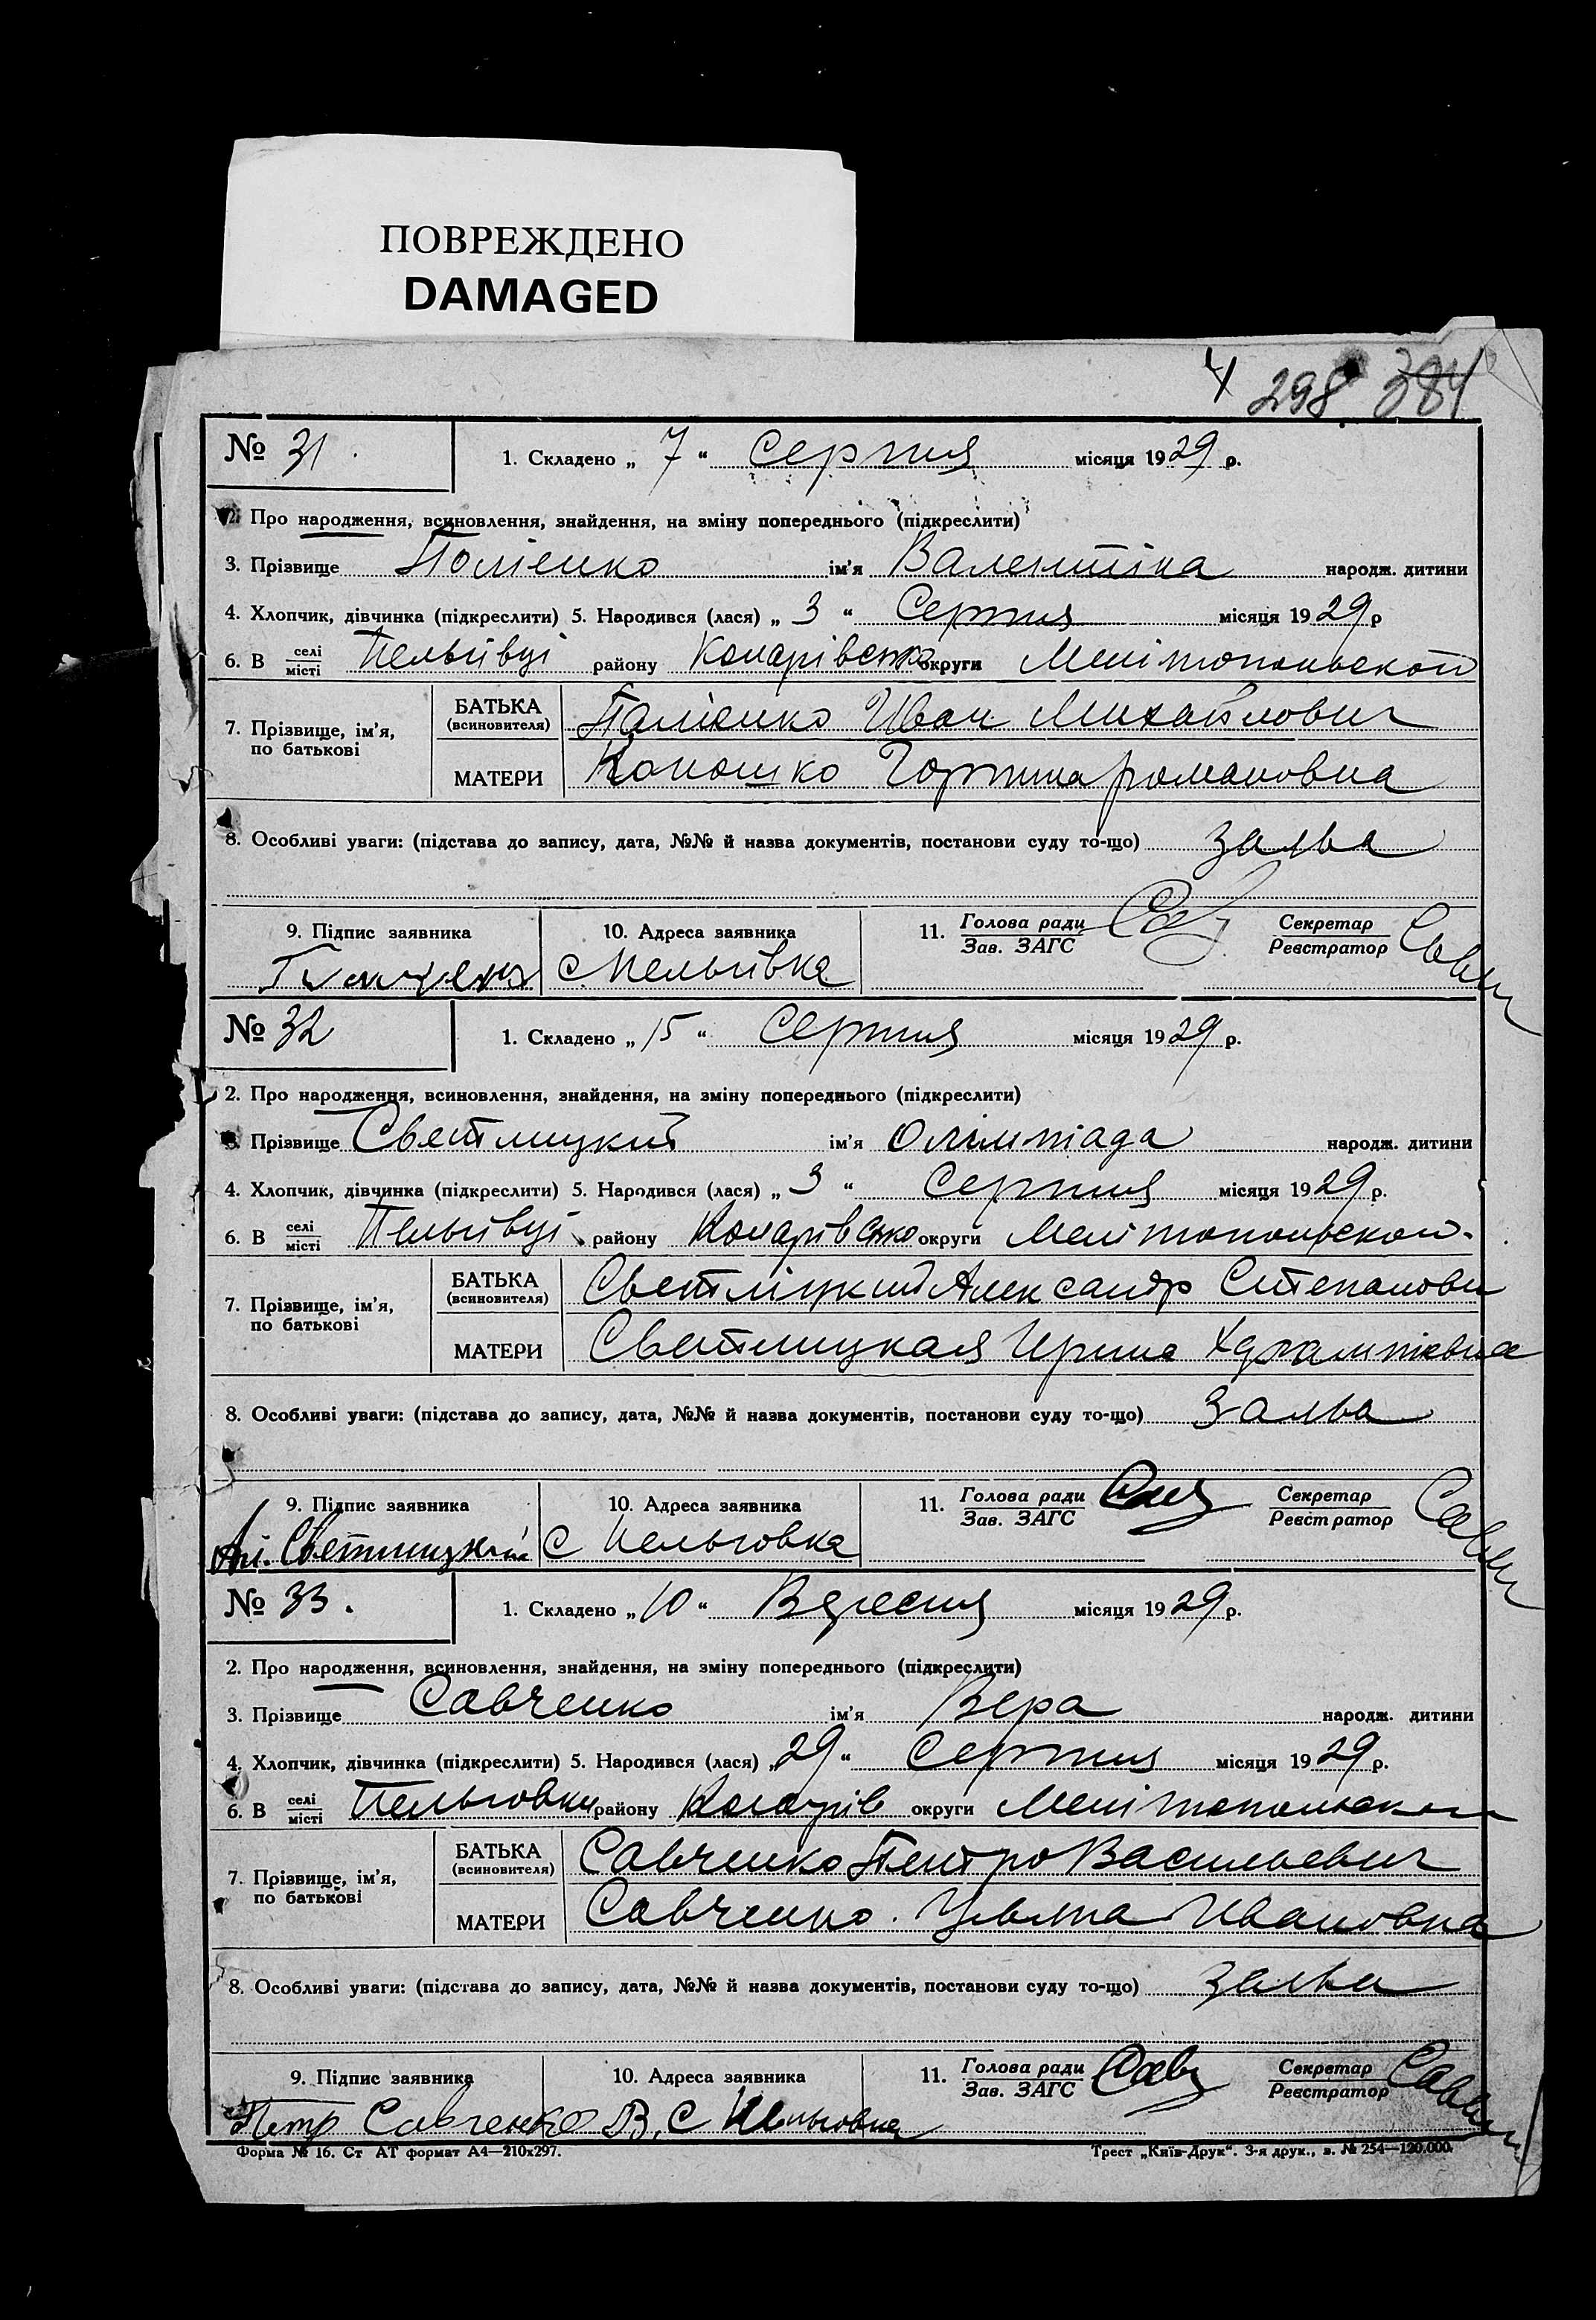 ПОВРЕЖДЕНО
DAMAGED
298 384
№ 31. 1. Складено „ 7 “ Серпня місяця 1929 р.
2. Про народження, всиновлення, знайдення, на зміну попереднього (підкреслити)
3. Прізвище ім’я Валентіна народж. дитини
4. Хлопчик, дівчинка (підкреслити) 5. Народився (лася) „ 3 “ Серпня місяця 1929 р
6. В селі місті району округи Мелітопольской
7. Прізвище, ім’я, по батькові
БАТЬКА (всиновителя) Иван Михайлович
МАТЕРИ романовна
8. Особливі уваги: (підстава до запису, дата, №№ й назва документів, постанови суду то-що) заява
9. Підпис заявника 10. Адреса заявника 11. Голова ради Зав. ЗАГС Секретар Реєстратор
с.
№ 32 1. Складено „ 15 “ Серпня місяця 1929 р.
2. Про народження, всиновлення, знайдення, на зміну попереднього (підкреслити)
3. Прізвище Светлицкий ім’я Олімпіада народж. дитини
4. Хлопчик, дівчинка (підкреслити) 5. Народився (лася) „ 3 “ Серпня місяця 1929 р.
6. В селі місті району округи Мелітопольской.
7. Прізвище, ім’я, по батькові
БАТЬКА (всиновителя) Светліцкий Александр Степанович
МАТЕРИ Светлицкая Ирина
8. Особливі уваги: (підстава до запису, дата, №№ й назва документів, постанови суду то-що) заява
9. Підпис заявника 10. Адреса заявника 11. Голова ради Зав. ЗАГС Секретар Реєстратор
Светлицкий с
№ 33. 1. Складено „ 10 “ Вересня місяця 1929 р.
2. Про народження, всиновлення, знайдення, на зміну попереднього (підкреслити)
3. Прізвище Савченко ім’я Вера народж. дитини
4. Хлопчик, дівчинка (підкреслити) 5. Народився (лася) „ 29 “ Серпня місяця 1929 р.
6. В селі місті району округи Мелітопольской
7. Прізвище, ім’я, по батькові
БАТЬКА (всиновителя) Савченко Васильевич
МАТЕРИ Савченко Ивановна
8. Особливі уваги: (підстава до запису, дата, №№ й назва документів, постанови суду то-що) заява
9. Підпис заявника 10. Адреса заявника 11. Голова ради Зав. ЗАГС Секретар Реєстратор
Петр Савченко В. С
Форма № 16. Ст АТ формат А4—210х297. Трест „Київ-Друк“. 3-я друк., з. № 254—120.000.